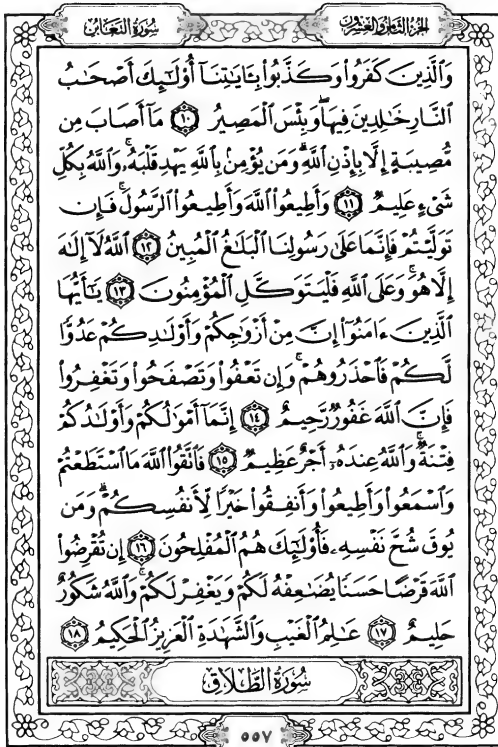 الجزء الثامن والعشرون
سورة التغابن
وَالَّذِينَ كَفَرُواْ وَكَذَّبُواْ بِـَٔايَٰتِنَآ أُوْلَٰٓئِكَ أَصْحَٰبُ
النَّارِ خَٰلِدِينَ فِيهَاۖ وَبِئْسَ الْمَصِيرُ ١٠ مَآ أَصَابَ مِن
مُّصِيبَةٍ إِلَّا بِإِذْنِ اللَّهِۗ وَمَن يُؤْمِنۢ بِاللَّهِ يَهْدِ قَلْبَهُۥۚ وَاللَّهُ بِكُلِّ
شَىْءٍ عَلِيمٌ ١١ وَأَطِيعُواْ اللَّهَ وَأَطِيعُواْ الرَّسُولَۚ فَإِن
تَوَلَّيْتُمْ فَإِنَّمَا عَلَىٰ رَسُولِنَا الْبَلَٰغُ الْمُبِينُ ١٢ اللَّهُ لَآ إِلَٰهَ
إِلَّا هُوَۚ وَعَلَى اللَّهِ فَلْيَتَوَكَّلِ الْمُؤْمِنُونَ ١٣ يَٰٓأَيُّهَا
الَّذِينَ ءَامَنُوٓاْ إِنَّ مِنْ أَزْوَٰجِكُمْ وَأَوْلَٰدِكُمْ عَدُوًّا
لَّكُمْ فَاحْذَرُوهُمْۚ وَإِن تَعْفُواْ وَتَصْفَحُواْ وَتَغْفِرُواْ
فَإِنَّ اللَّهَ غَفُورٌ رَّحِيمٌ ١٤ إِنَّمَآ أَمْوَٰلُكُمْ وَأَوْلَٰدُكُمْ
فِتْنَةٌۚ وَاللَّهُ عِندَهُۥٓ أَجْرٌ عَظِيمٌ ١٥ فَاتَّقُواْ اللَّهَ مَا اسْتَطَعْتُمْ
وَاسْمَعُواْ وَأَطِيعُواْ وَأَنفِقُواْ خَيْرًا لِّأَنفُسِكُمْۗ وَمَن
يُوقَ شُحَّ نَفْسِهِۦ فَأُوْلَٰٓئِكَ هُمُ الْمُفْلِحُونَ ١٦ إِن تُقْرِضُواْ
اللَّهَ قَرْضًا حَسَنًا يُضَٰعِفْهُ لَكُمْ وَيَغْفِرْ لَكُمْۚ وَاللَّهُ شَكُورٌ
حَلِيمٌ ١٧ عَٰلِمُ الْغَيْبِ وَالشَّهَٰدَةِ الْعَزِيزُ الْحَكِيمُ ١٨
سُورَةُ الطَّلَاق
٥٥٧